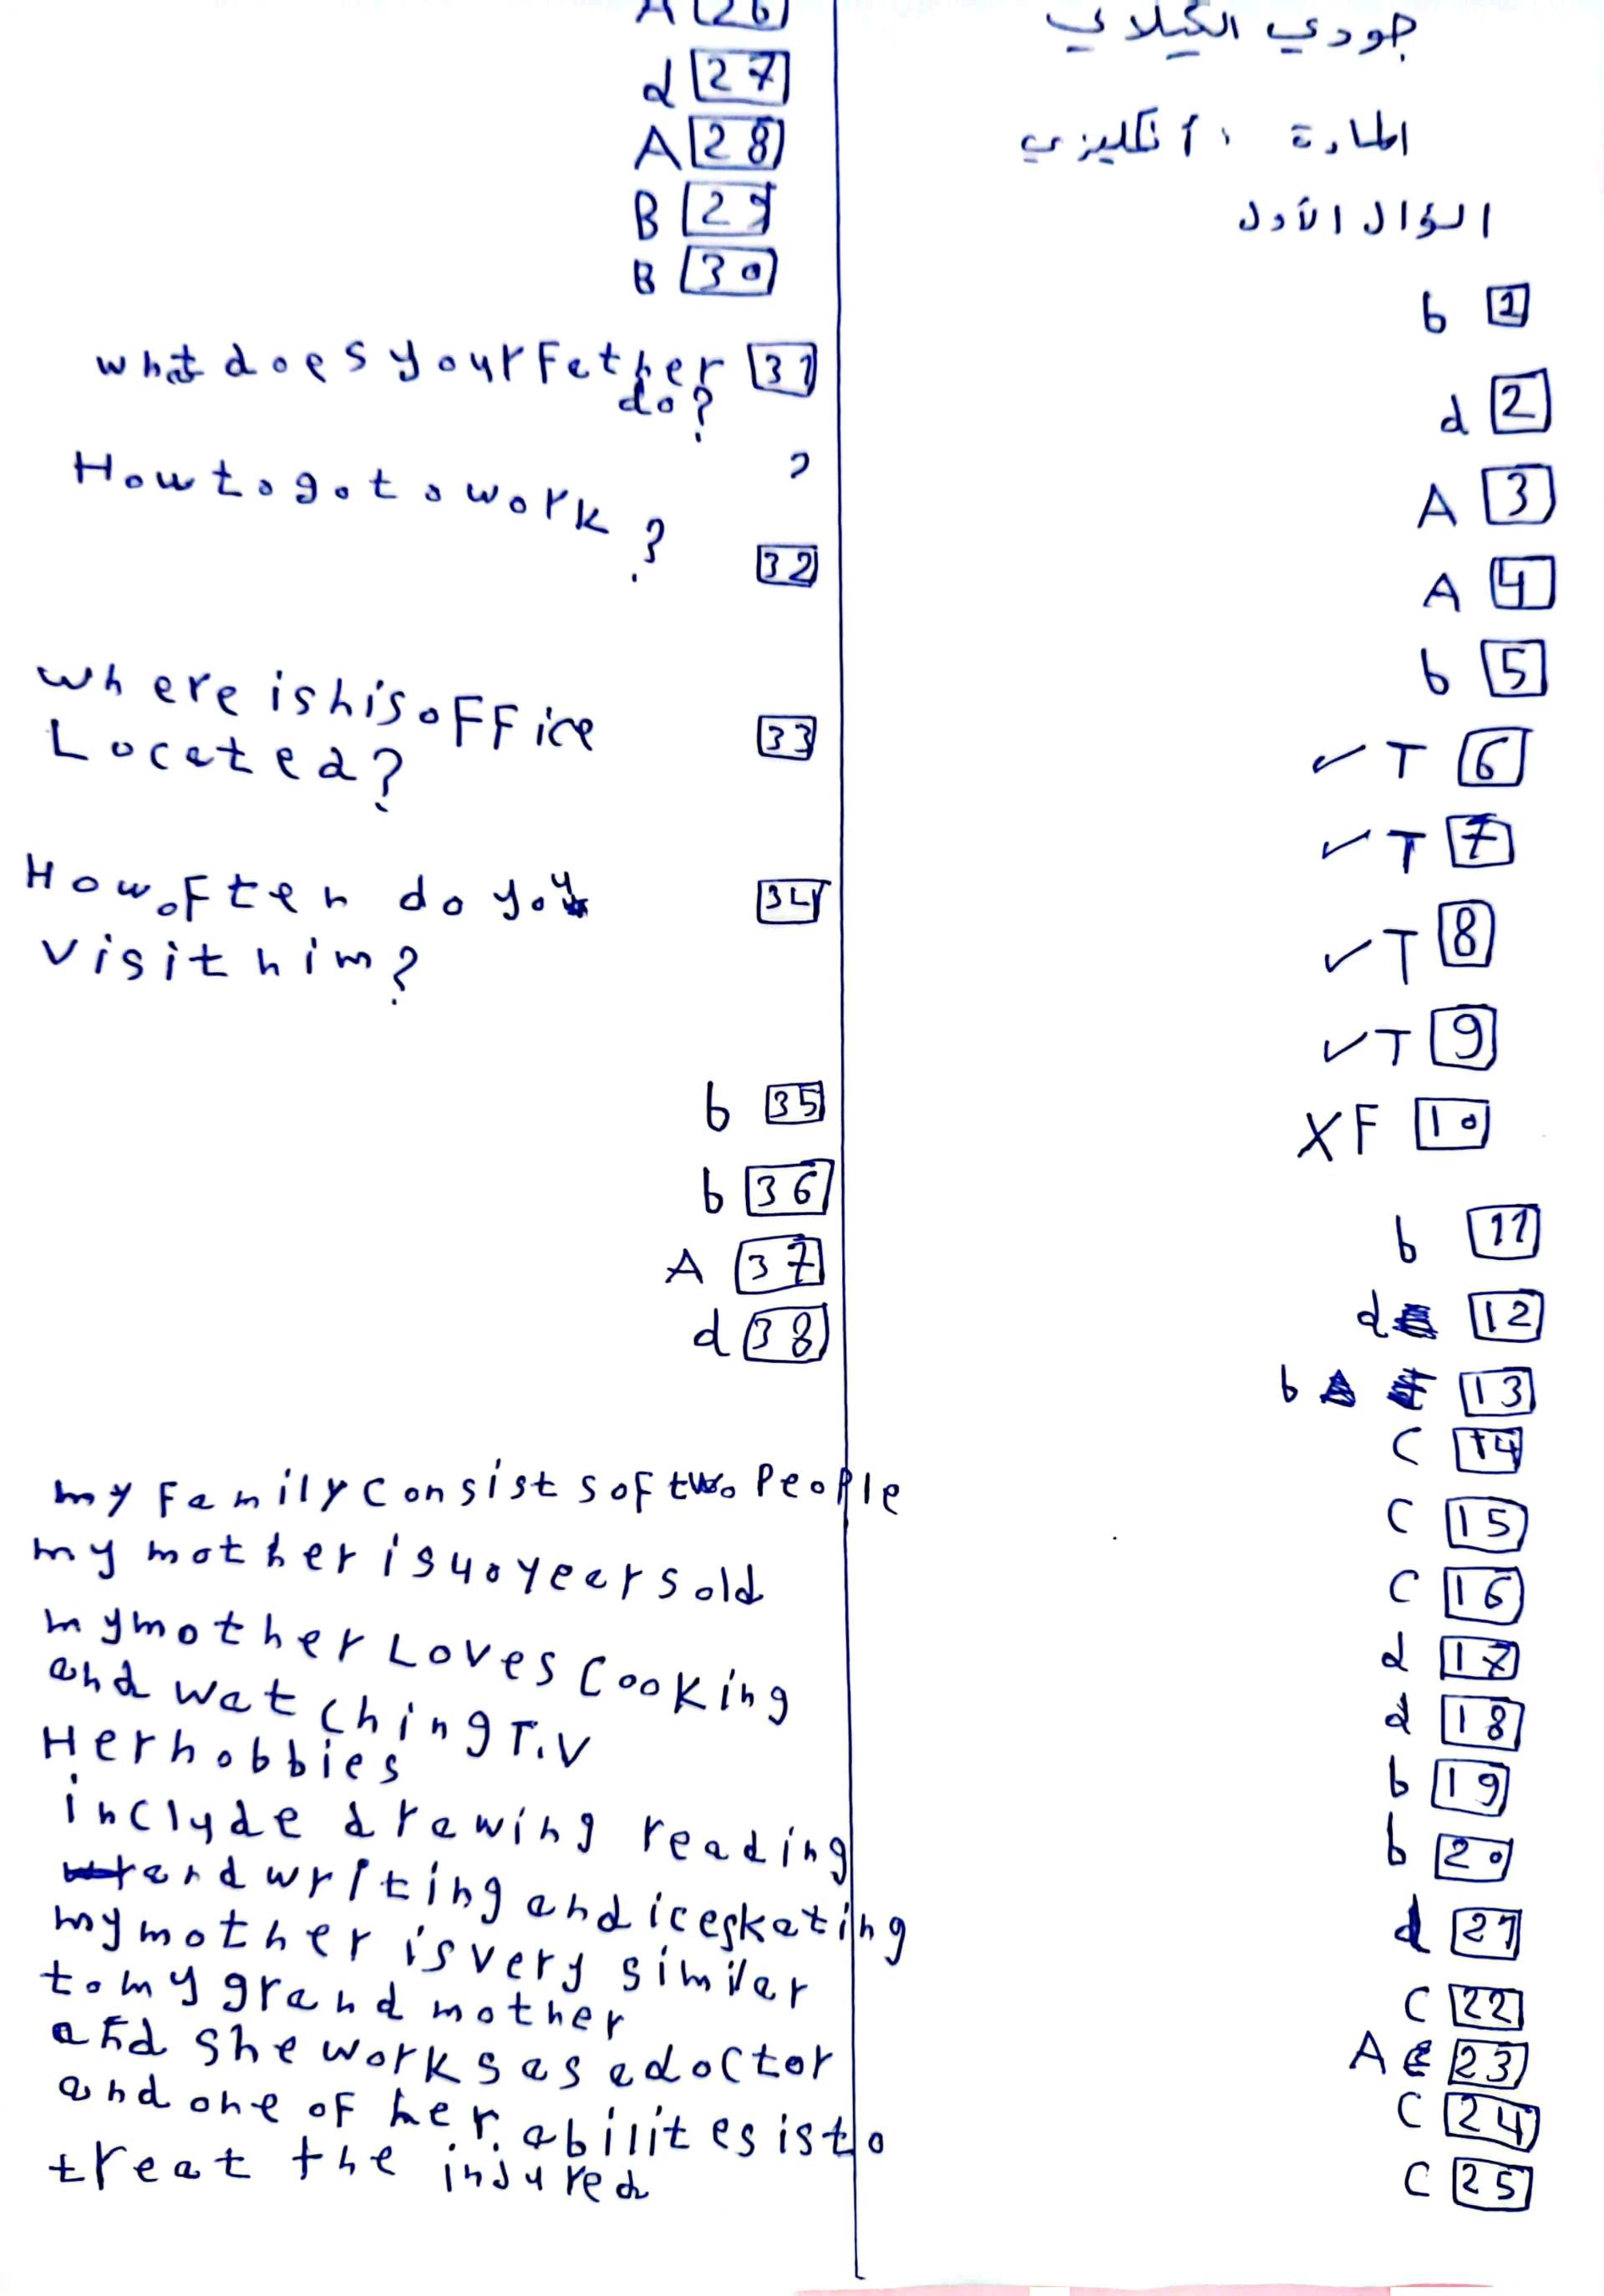 جودي الكيلاي
المادة : أنكليزي
السؤال الأول
b 1
d 2
A 3
A 4
b 5
✓ T 6
✓ T 7
✓ T 8
✓ T 9
X F 10
b 11
d 12
b 13
C 14
C 15
C 16
d 17
d 18
b 19
b 20
d 21
C 22
A 23
C 24
C 25
A 26
d 27
A 28
B 29
B 30
what does your Father 31
do?
How to go to work ?
32
where is his oFFice 33
Located?
How oFten do you 34
visit him?
b 35
b 36
A 37
d 38
my Family Consists oF two People
my mother is 40 years old
my mother Loves Cooking
and watching T.V
Her hobbies
include drawing reading
and writing and ice skating
my mother is very similar
to my grand mother
and she works as a doctor
and one oF her abilites is to
treat the injured